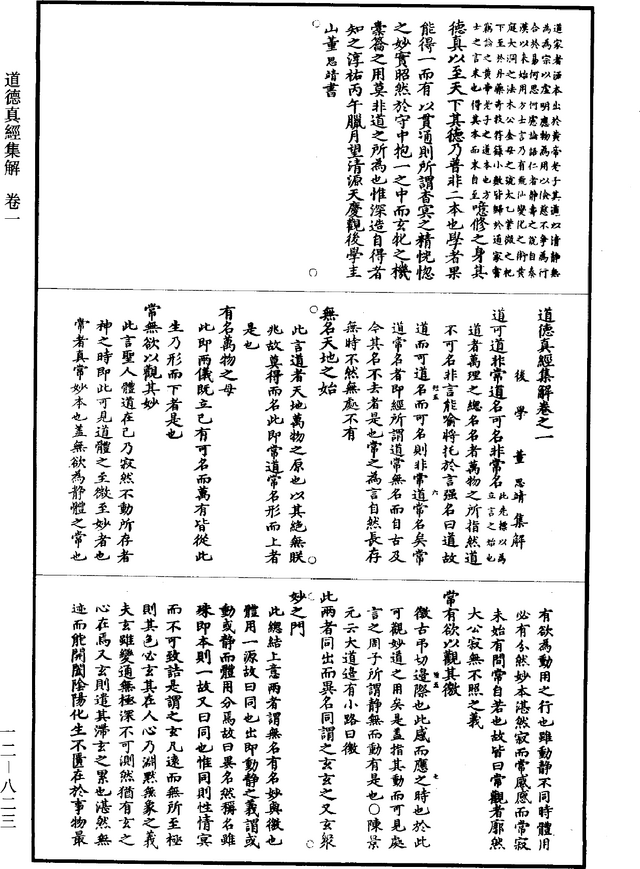 道家者流本出於黃帝老子其道以清靜無
為為宗以虛明應物為用以慈儉不爭為行
合於易何思何慮論語仁者靜壽之說自秦
漢以來始用方士言乃有飛仙變化之術黃
庭大洞之法木公金母之號太乙紫微之祀
下至於丹藥奇技符籙小數皆歸於道家嘗
竊論之黃帝老子之道本也方
士之言末也得其本而末自至噫修之身其
德真以至天下其德乃普非二本也學者果
能得一而有以貫通則所謂杳冥之精恍惚
之妙實昭然於守中抱一之中而玄牝之機
橐籥之用莫非道之所為也惟深造自得者
知之淳祐丙午臘月望清源天慶觀後學圭
山董思靖書
道德真經集解卷之一
後學 董思靖 集解
道可道非常道名可名非常名此先標以為立言之始也
道者萬理之總名名者萬物之所指然道
不可名非言能喻將托於言强名曰道故
道而可道名而可名則非常道常名矣常
道常名者即經所謂道常無名而自古及
今其名不去者是也常之為言自然長存
無時不然無處不有
無名天地之始
此言道者天地萬物之原也以其絕無朕
兆故莫得而名此即常道常名形而上者
是也
有名萬物之母
此即兩儀既立已有可名而萬有皆從此
生乃形而下者是也
常無欲以觀其妙
此言聖人體道在己乃寂然不動所存者
神之時即此可見道體之至微至妙者也
常者真常妙本也蓋無欲為靜體之常也
有欲為動用之行也雖動靜不同時體用
必有分然妙本湛然寂而常感感而常寂
未始有間常自若也故皆曰常觀者廓然
大公寂無不照之義
常有欲以觀其徼
徼古弔切邊際也此感而應之時也於此
可觀妙道之用矣是蓋指其動而可見處
言之周子所謂靜無而動有是也○陳景
元云大道邊有小路曰徼
此兩者同出而異名同謂之玄玄之又玄眾
妙之門
此總結上意兩者謂無名有名妙與徼也
體用一源故曰同也出即動靜之義謂或
動或靜而體用分焉故曰異名然稱名雖
殊即本則一故又曰同也惟同則性情冥
而不可致詰是謂之玄凡遠而無所至極
則其色必玄其在人心乃淵默無象之義
夫玄雖變通無極深不可測然猶有玄之
心在焉又玄則遣其滯玄之累也湛然無
迹而能開闔陰陽化生不匱在於事物最
道德真經集解 卷一
一二—八二三